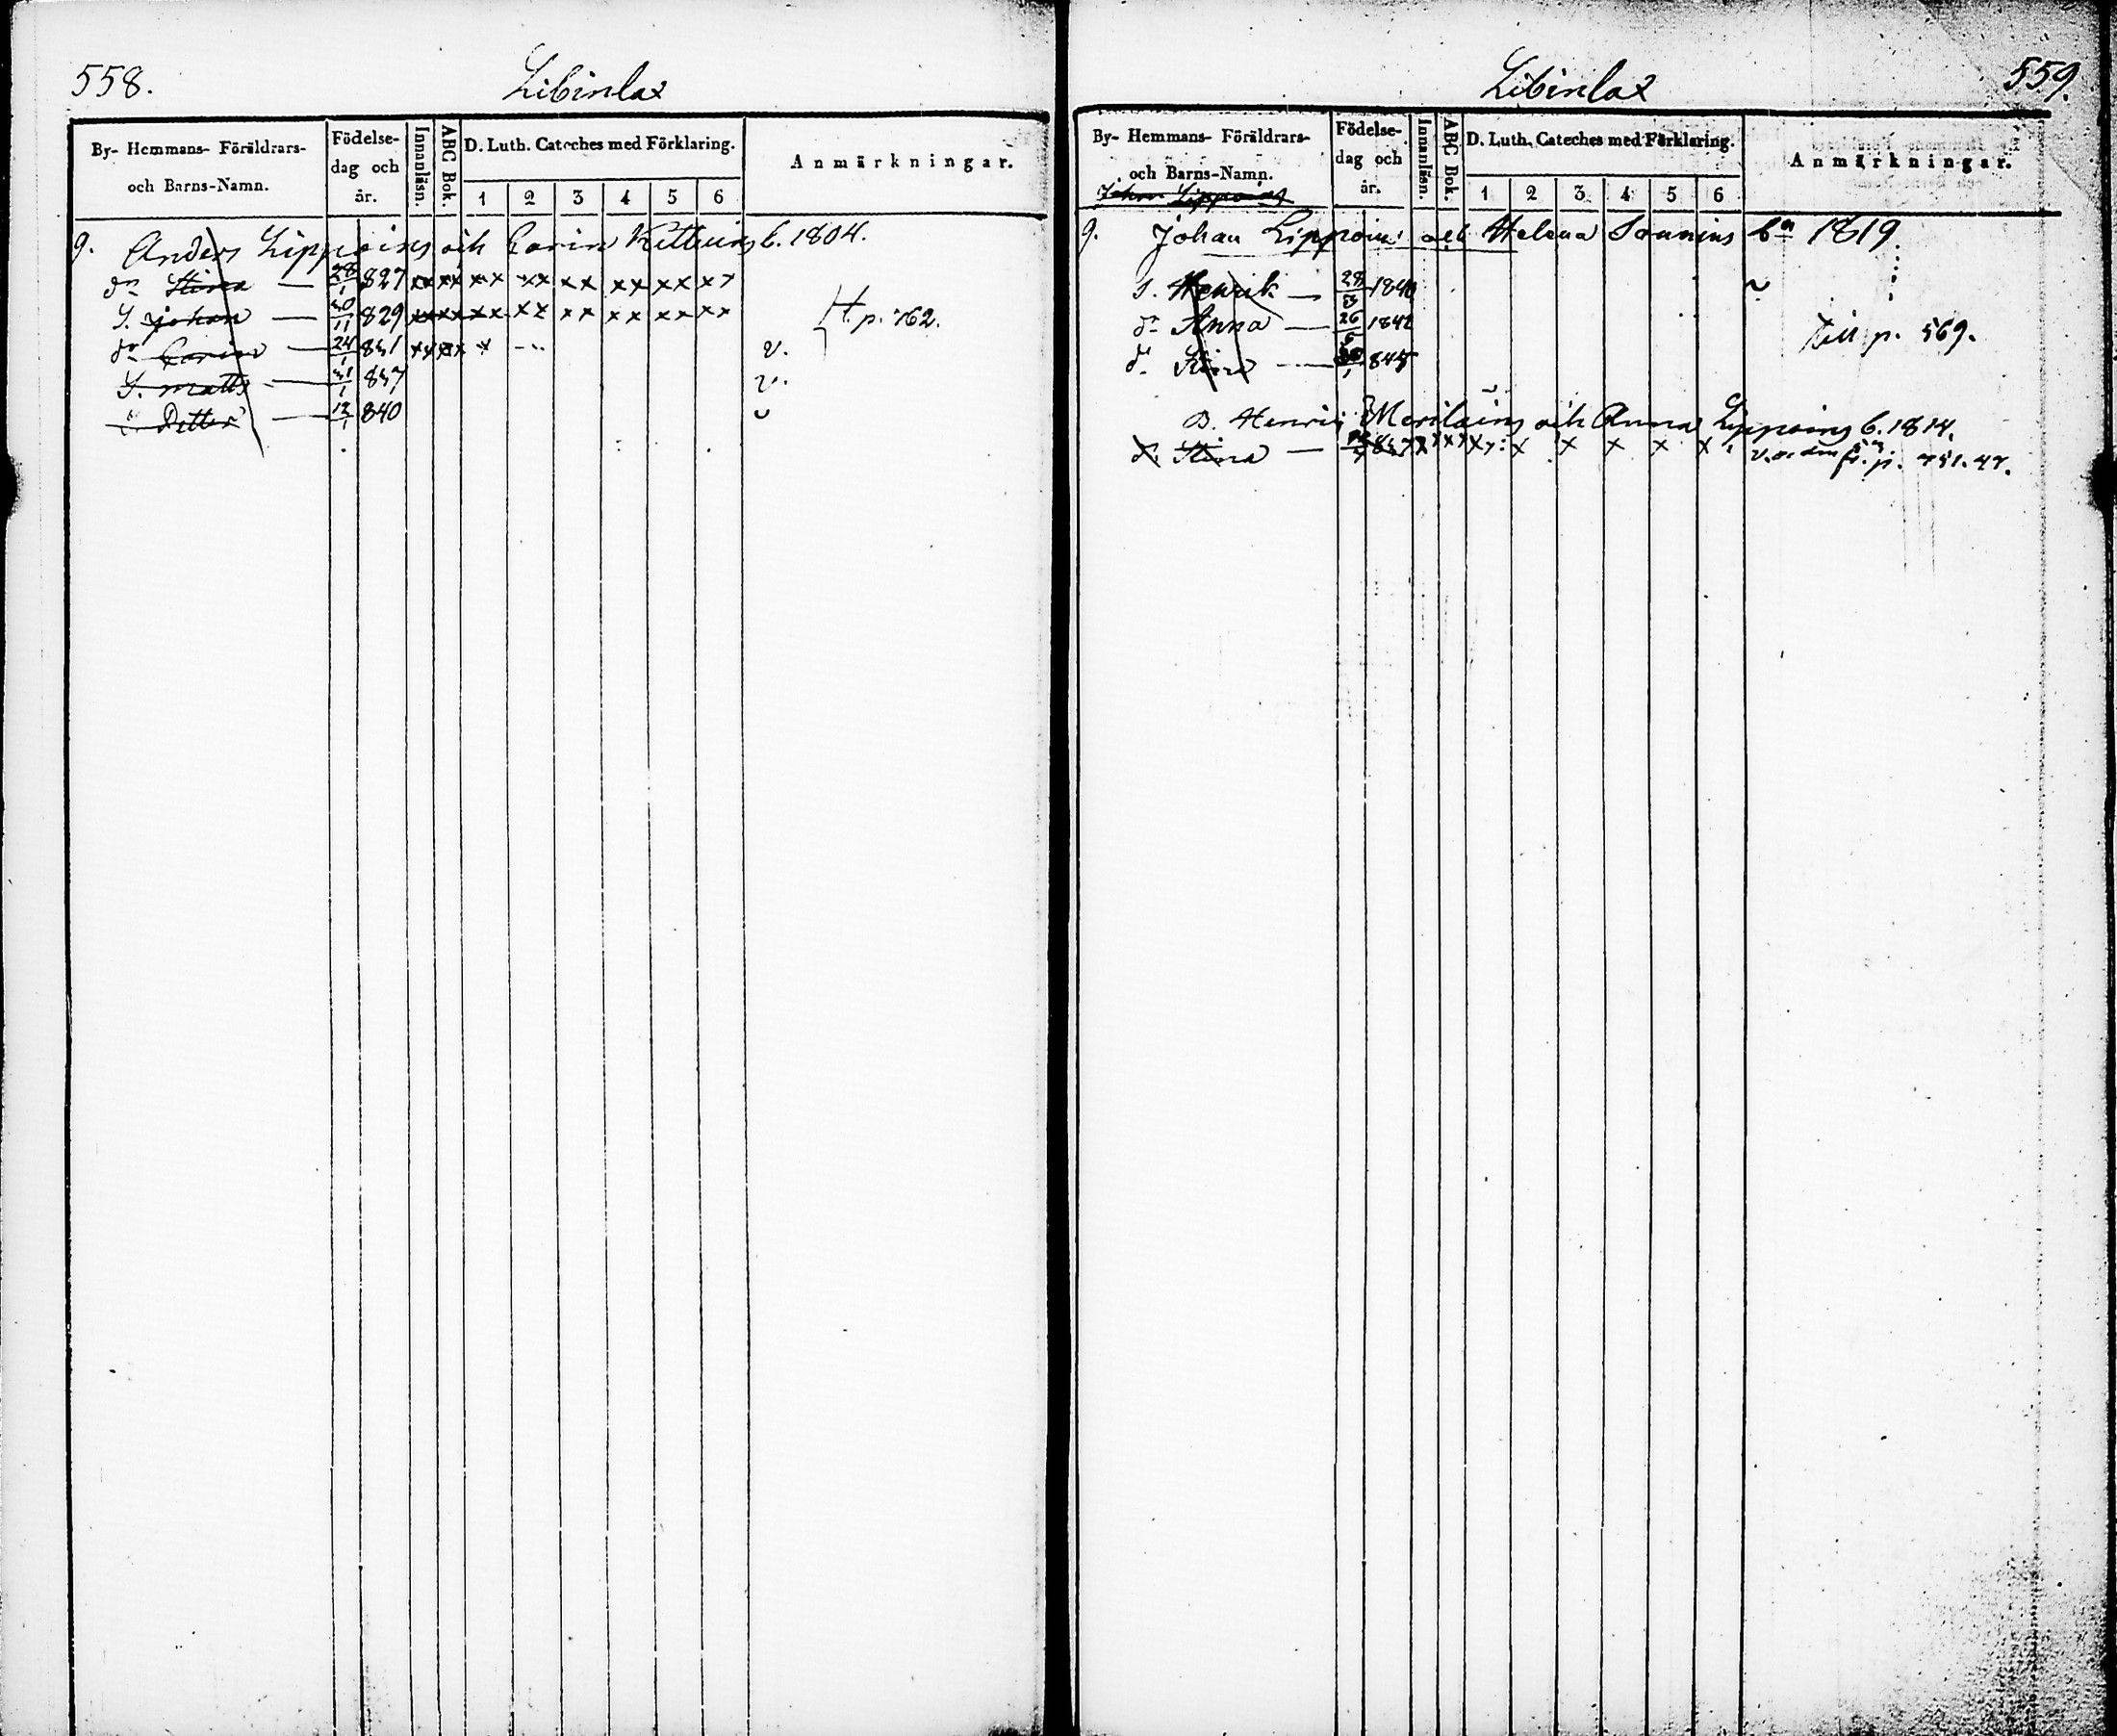 558.
Libinlax
By- Hemmans- Föräldrars- och Barns-Namn.
Födelse- dag och år.
Innanläsn.
ABC Bok.
D. Luth. Cateches med Förklaring.
1 2 3 4 5 6
Anmärkningar.
9. Anders Lippoins och Carin b. 1804.
dr Stina — 28/1 827 xx xx xx xx xx xx xx xx
S. Johan — 30/11 829 xx xx xx xx xx xx xx xx
H. p. 762.
dr Carin — 24/1 831 v.
S. Matts — 31/1 837 v.
S. Petter — 12/1 840
559.
Libinlax
By- Hemmans- Föräldrars- och Barns-Namn.
Johan Lippoins
Födelse- dag och år.
Innanläsn.
ABC Bok.
D. Luth. Cateches med Förklaring.
1 2 3 4 5 6
Anmärkningar.
9. Johan Lippoin och Helena Sonnins bn 1819
s. Henrik — 1840
dr Anna — 26 1842
Till p. 569.
d. Stina — 845
B. Henric Meriläins och Anna Lippoins b. 1814.
d. Stina — x x x x x x fr. p. 751. 47.